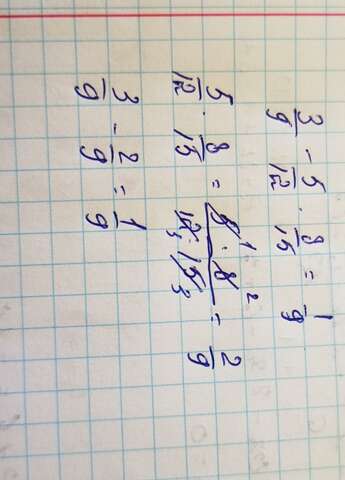 3/9 - 5/12 · 8/15 = 1/9
5/12 · 8/15 = 5 1 · 8 2 / 12 3 · 15 3 = 2/9
3/9 - 2/9 = 1/9